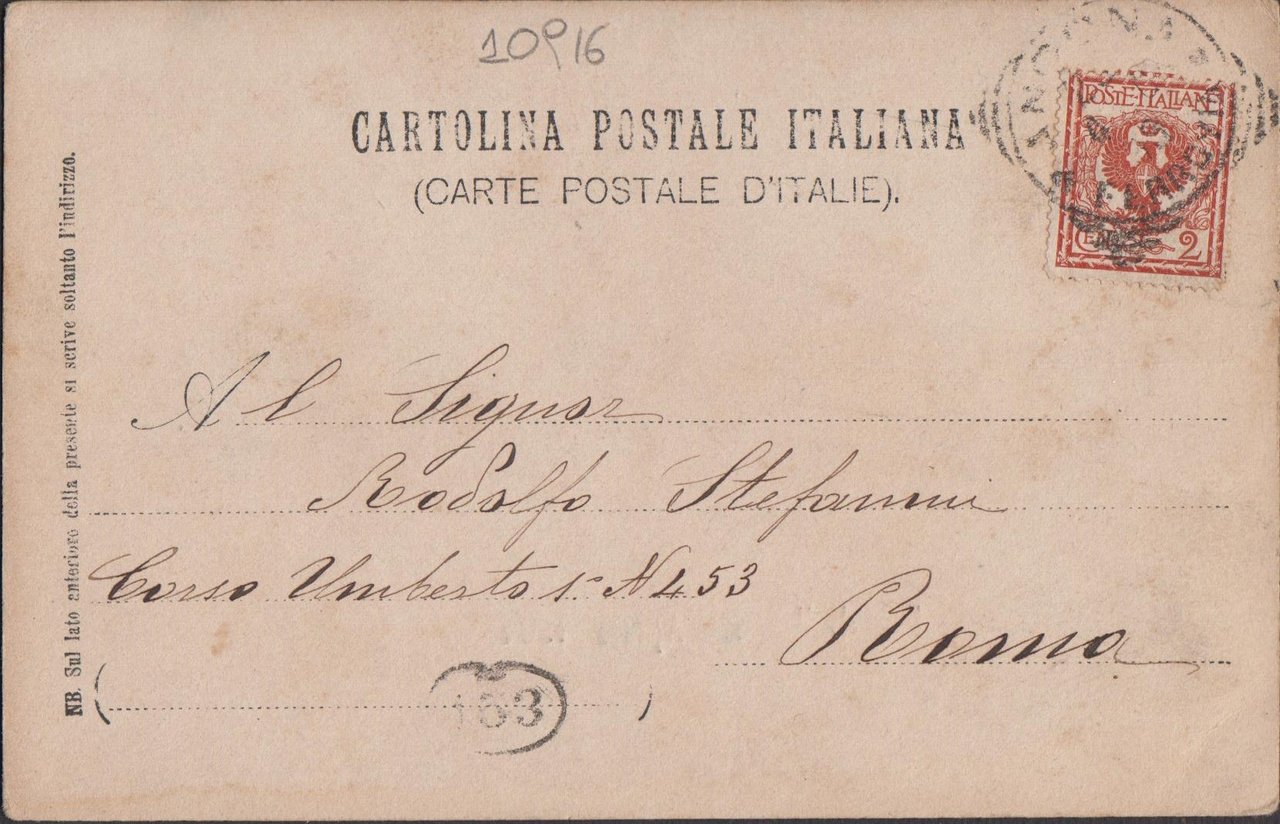 10916
CARTOLINA POSTALE ITALIANA
(CARTE POSTALE D'ITALIE).
POSTE·ITALIANE
2
NB. Sul lato anteriore della presente si scrive soltanto l'indirizzo.
Al Signor
Rodolfo Stefannini
Corso Umberto 1° N 453
Roma
153